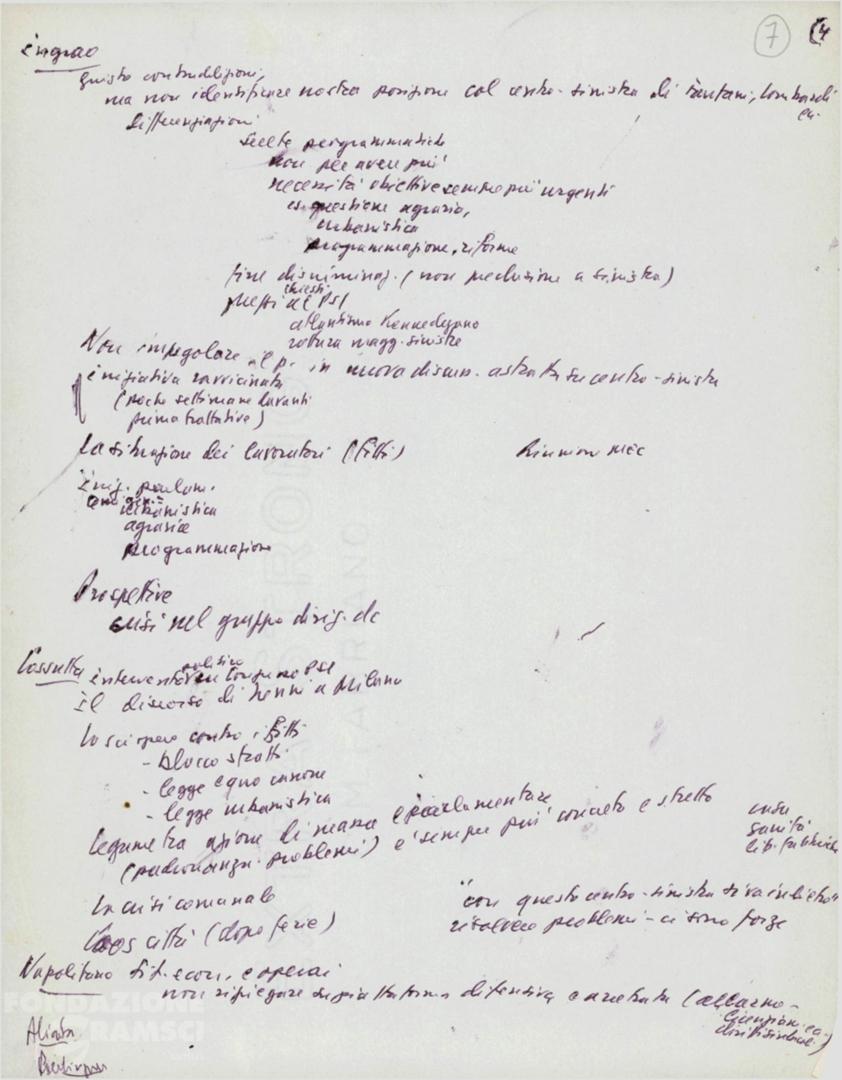 7
Ingrao
giusto contraddizioni,
ma non identificare nostra posizione col centro-sinistra di Fanfani, Lombardi
ecc.
differenziazioni
scelte programmatiche
non per avere più
necessità obiettive sempre più urgenti
es. questione agraria,
urbanistica
programmazione, riforme
fine discriminaz. (non preclusione a sinistra)
chiesti
al PSI
atlantismo Kennedyano
rottura magg. sinistre
Non impegolare in nuova discuss. astratta su centro-sinistra
iniziativa ravvicinata
(poche settimane davanti
prima trattative)
La situazione dei lavoratori (fitti)
Riunione MEC
iniz. parlam.
urbanistica
agrarie
programmazione
Prospettive
crisi nel gruppo dirig. dc
Cossutta
politico
intervento in Congresso PSI
Il discorso di Nenni a Milano
Lo sciopero contro i fitti
- blocco sfratti
- legge equo canone
- legge urbanistica
legame tra azione di massa e parlamentare
(padronanza problemi) è sempre più concreto e stretto
casa
sanità
lib. fabbriche
La crisi comunale
"con questo centro-sinistra si va indietro"
risolvere problemi - ci sono forze
Caos città (dopo ferie)
Napolitano sit. econ. e operai
non ripiegare su piattaforma difensiva e arretrata (allarme -
licenziam. ecc.
Alicata
FONDAZIONE
GRAMSCI